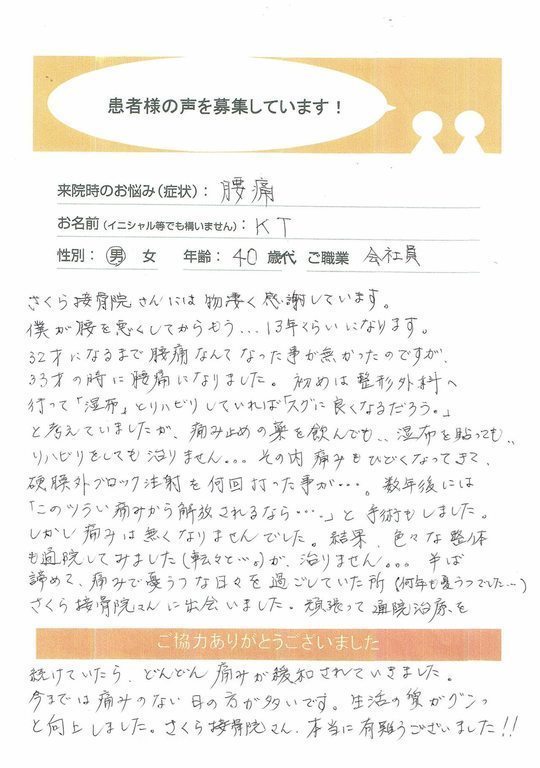 患者様の声を募集しています！
来院時のお悩み（症状）：腰痛
お名前（イニシャル等でも構いません）：KT
性別：男 女 年齢：40 歳代 ご職業 会社員
さくら接骨院さんには物凄く感謝しています。
僕が腰を悪くしてからもう...13年くらいになります。
32才になるまで腰痛なんてなった事が無かったのですが、
33才の時に腰痛になりました。初めは整形外科へ
行って「湿布」とリハビリしていれば「スグに良くなるだろう。」
と考えていましたが、痛み止めの薬を飲んでも、、湿布を貼っても、、
リハビリをしても治りません。。。その内痛みもひどくなってきて、
硬膜外ブロック注射を何回打った事か・・・。数年後には
「このツラい痛みから解放されるなら・・・。」と手術もしました。
しかし痛みは無くなりませんでした。結果、色々な整体
も通院してみました（転々と…。）が、治りません。。。半ば
諦めて、痛みで憂うつな日々を過ごしていた所（何年も憂うつでした…）
さくら接骨院さんに出会いました。頑張って通院治療を
ご協力ありがとうございました
続けていたら、どんどん痛みが緩和されていきました。
今までは痛みのない日の方が多いです。生活の質がグンっ
と向上しました。さくら接骨院さん、本当に有難うございました!!